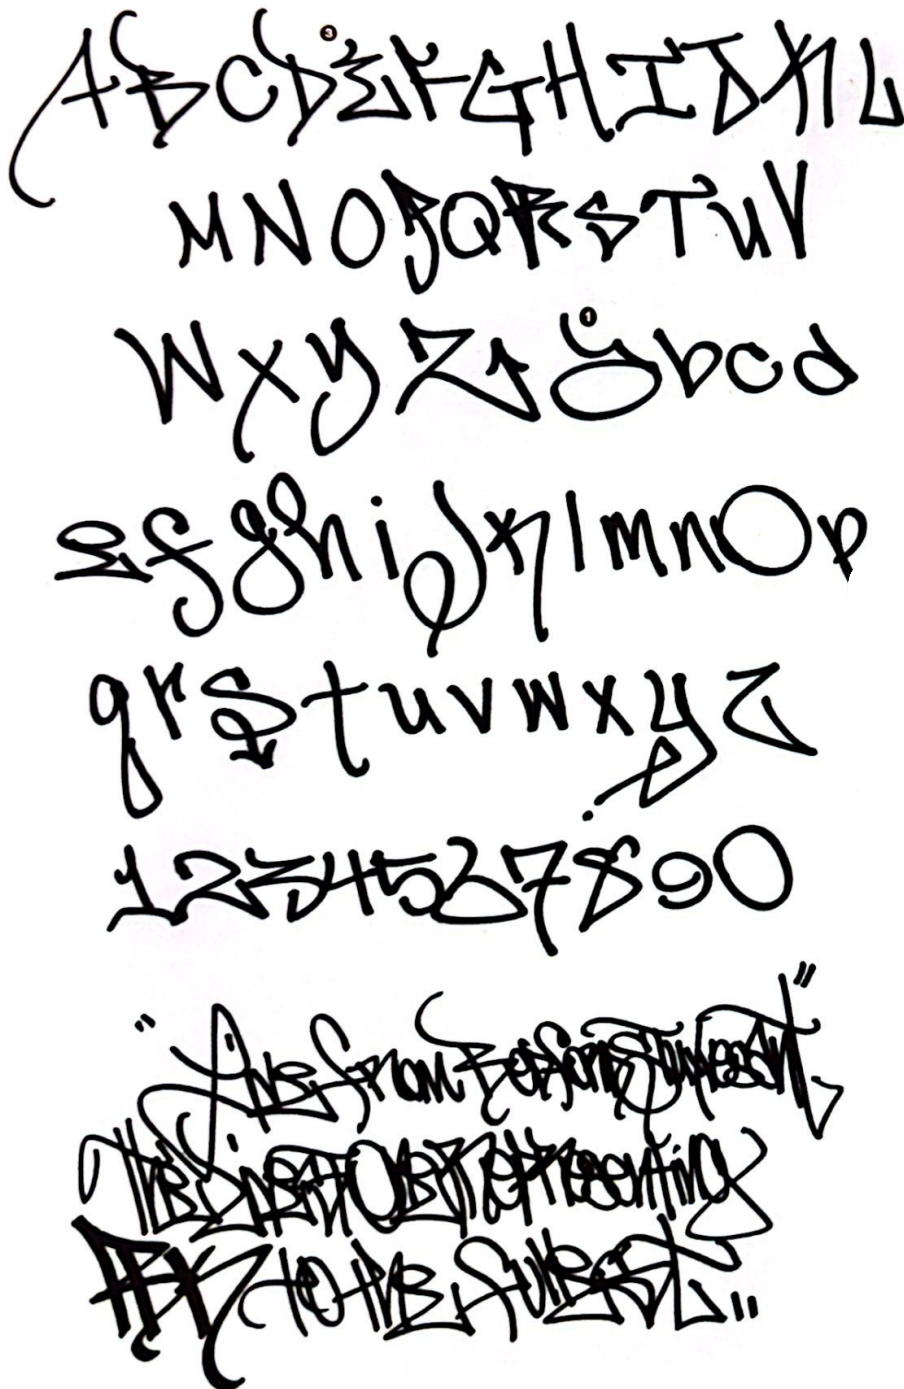 3
ABCDEFGHIJKL
MNOPQRSTUV
WXYZ
1
abcd
efghijklmnOp
qrstuvwxyz
1234567890
"Live from Bedford Stuyvesant
The Livest One Representing
BK to the fullest"